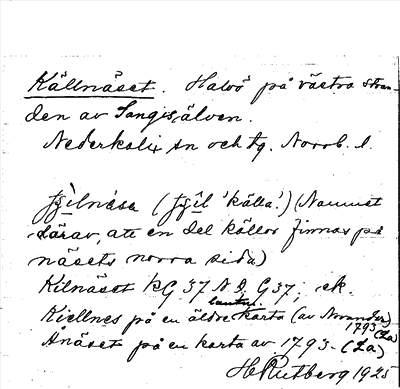 Källnäset. Halvö på västra stran-
den av Sangisälven.
Nederkalix sn och tg. Norrb. l.
(Namnet
därav, att en del källor finnas på
näsets norra sida)
Kilnäset kG 37 A D, G 37; ek.
lantm.
Kiellnes på en äldre karta (av Norander)
1793 (La)
Änäset på en karta av 1793. (La)
H Rutberg 1925